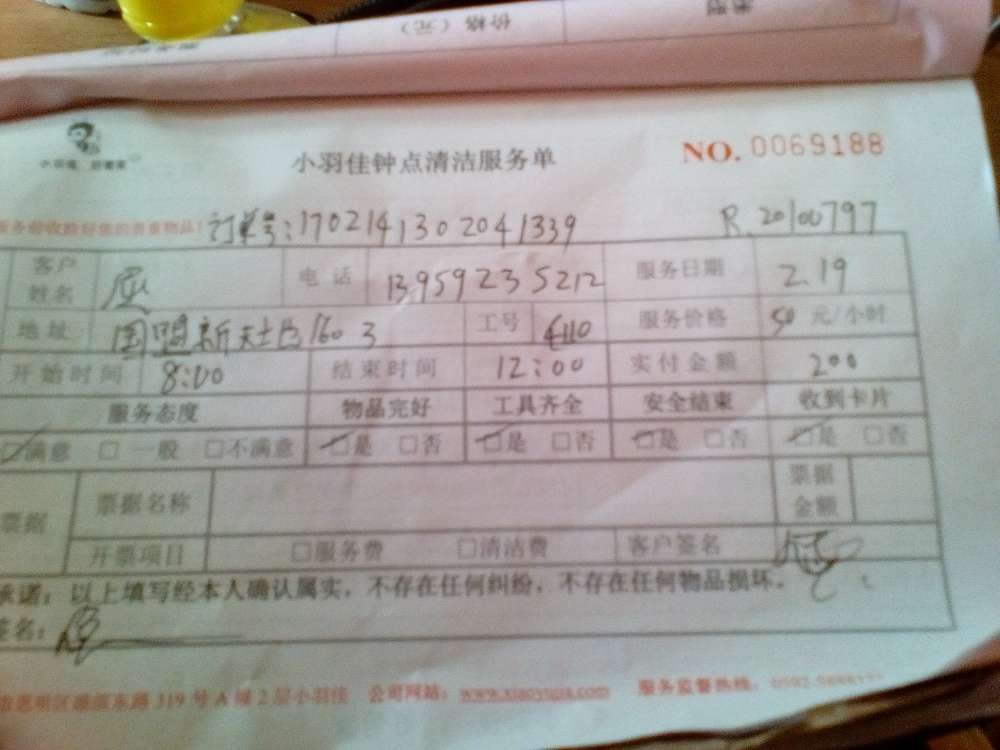 类型
价格（元）
小羽佳 好管家
小羽佳钟点清洁服务单
NO. 0069188
服务前收捡好您的贵重物品！
订单号：1702141302041339
R. 20100797
客户姓名
电 话
13959235212
服务日期
2.19
地址
1603
工号
服务价格
50 元/小时
开始时间
8:00
结束时间
12:00
实付金额
200
服务态度
物品完好
工具齐全
安全结束
收到卡片
☑满意 □ 一般 □不满意
☑是 □否
☑是 □否
☑是 □否
☑是 □否
票据
票据名称
票据金额
开票项目
□服务费 □清洁费
客户签名
承诺：以上填写经本人确认属实，不存在任何纠纷，不存在任何物品损坏。
签名：
东路 319 号 A 幢 2 层小羽佳 公司网站：www.xiaoyujia.com 服务监督热线：